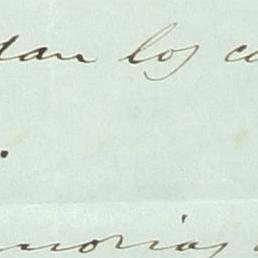 dan los ca
.
morias